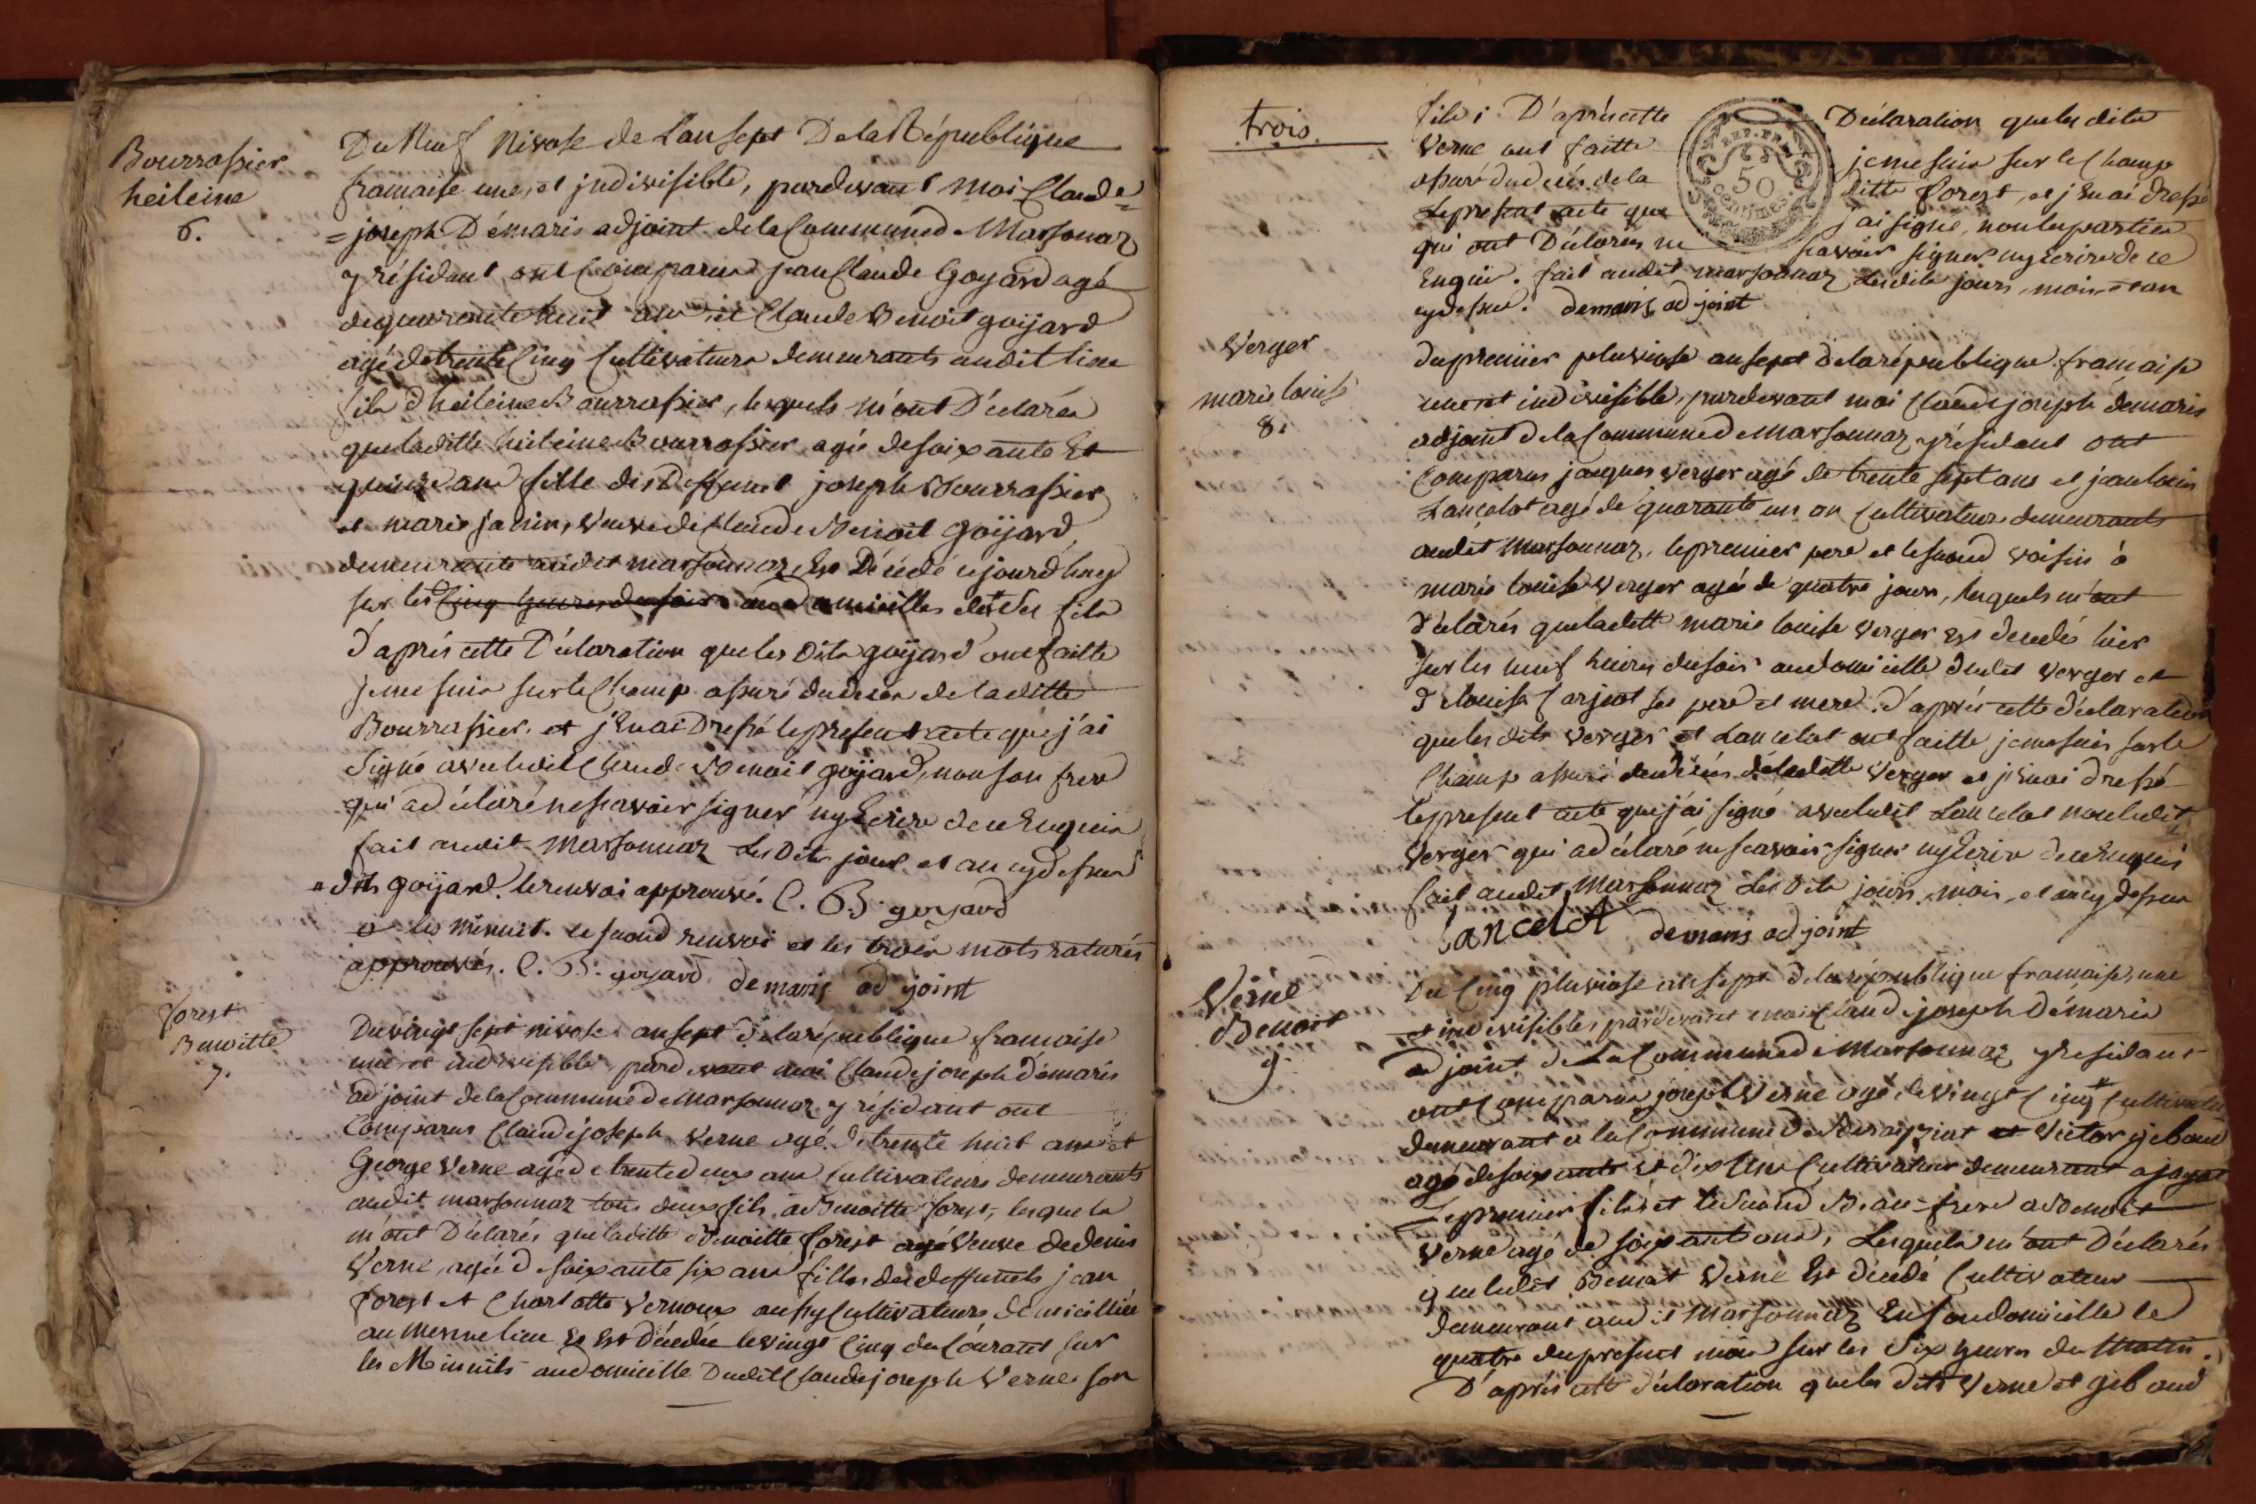 Bourrassier
heileine
6.
Du Neuf Nivose de Lan sept De la République
francaise une, et jndivisible, pardevant Moi Claude=
=joseph Démaris adjoint de la Commune de Marsonnaz
y résidant ont Comparus jean Claude Goyard agé
de quarante huit ans et Claude Benoit goijard
agé de trente Cinq Cultivateurs demeurants audit lieu
fils d'heileine Bourrassier, lesquels m'ont Déclarés
que laditte heileine Bourrassier agée de soixante Et
quinze ans fille des deffunts joseph Bourrassier
et marie janin, veuve de Claude Benoit Goijard,
demeurante audit marsonnaz Est Décédé cejourd'huy
sur les Cinq heures du soir au domicille desdits fils
D'aprés cette Déclaration que les Dits goijard ont faitte
je me suis sur le Champ assuré du deces de laditte
Bourrassier. et j'En ai Dressé le present acte que j'ai
Signé avec ledit Claude Benoit goijard, non son frere
qui a déclaré ne scavoir signer ny Ecrire de ce Enquis
fait audit Marsonnaz Les Dits jour et an cydessus
dits goijard. le renvoi approuvé. C. B. goyard
o les Minuit. le second renvoi et les trois mots raturés
approuvés. C. B. goyard demaris ad joint
forest
Benoitte
7.
Du vingt sept nivose an sept de la république francaise
une et indivisible, pardevant moi Claude joseph démaris
adjoint de la Commune de Marsonnaz y résidant ont
Comparus Claude joseph Verne agé de trente huit ans et
George Verne agé de trente deux ans Cultivateurs demeurants
audit marsonnaz tous deux fils à Benoitte forest, lesquels
m'ont Déclarés que laditte Benoitte forest agé Veuve de denis
Verne, agée de soixante six ans fille des deffunts jean
forest et Charlotte Vernoux aussy Cultivateurs domicilliée
au mesme lieu Est décédée le vingt Cinq du Courant sur
les Minuits au domicille Dudit Claude joseph Verne son
trois
fils ; D'aprés cette Déclaration que les dits
Verne ont faitte je me suis sur le Champ
assuré du decés de la ditte forest, et j'En ai dressé
le present acte que j'ai signé, non les parties
qui ont Déclarés ne scavoir signer ny Ecrire de ce
Enquis. fait audit marsonnaz Lesdits jours, mois et an
cydessus. demaris ad joint
REP. FRA.
50
centimes
Verger
marie louise
8.
du premier pluviose an sept de la république francaise
une et indivisible, pardevant moi Claude joseph démaris
adjoint de la Commune de Marsonnaz y résidant ont
Comparus jacques verger agé de trente sept ans et jean louis
Lancelot agé de quarante un an Cultivateurs demeurants
audit Marsonnaz, le premier pere et le second voisin à
marie louise verger agée de quatre jours, lesquels m'ont
déclarés que laditte marie louise Verger Est décédée hier
sur les neuf heures du soir au domicille dudit Verger et
de louise Carjeot ses pere et mere. d'aprés cette déclaration
que les dits Verger et Lancelot ont faitte, je me suis sur le
Champ assuré du décés de laditte Verger et j'En ai dressé
le present acte que j'ai signé avec ledit Lancelot non ledit
Verger qui a déclaré ne scavoir signer ny Ecrire de ce Enquis
fait audit Marsonnaz Les Dits jours, mois, et an cydessus
Lancelot demaris ad joint
Verne
Benoit
9.
Du Cinq pluviose an sept de la république francaise, une
et indivisible, pardevant moi Claude joseph Démaris
adjoint de La Commune de Marsonnaz y residant
ont Comparus joseph Verne agé de vingt Cinq Cultivateur
demeurant à la Commune de Bereyziat et Victor gebaud
agé de soixante et dix Un Cultivateur demeurant a jayat
Le premier fils et le Second Beau-frere a Benoit
Verne agé de soixante ans, Lesquels m'ont Déclarés
que ledit Benoit Verne Est décédé Cultivateur
demeurant audit Marsonnaz En son domicille le
quatre du present mois sur les Six heures du Matin.
D'aprés cette déclaration que les dits Verne et gebaud